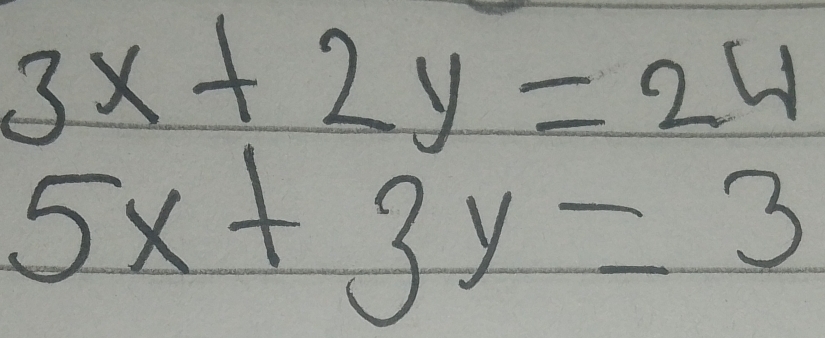 3x + 2y = 24
5x + 3y = 3